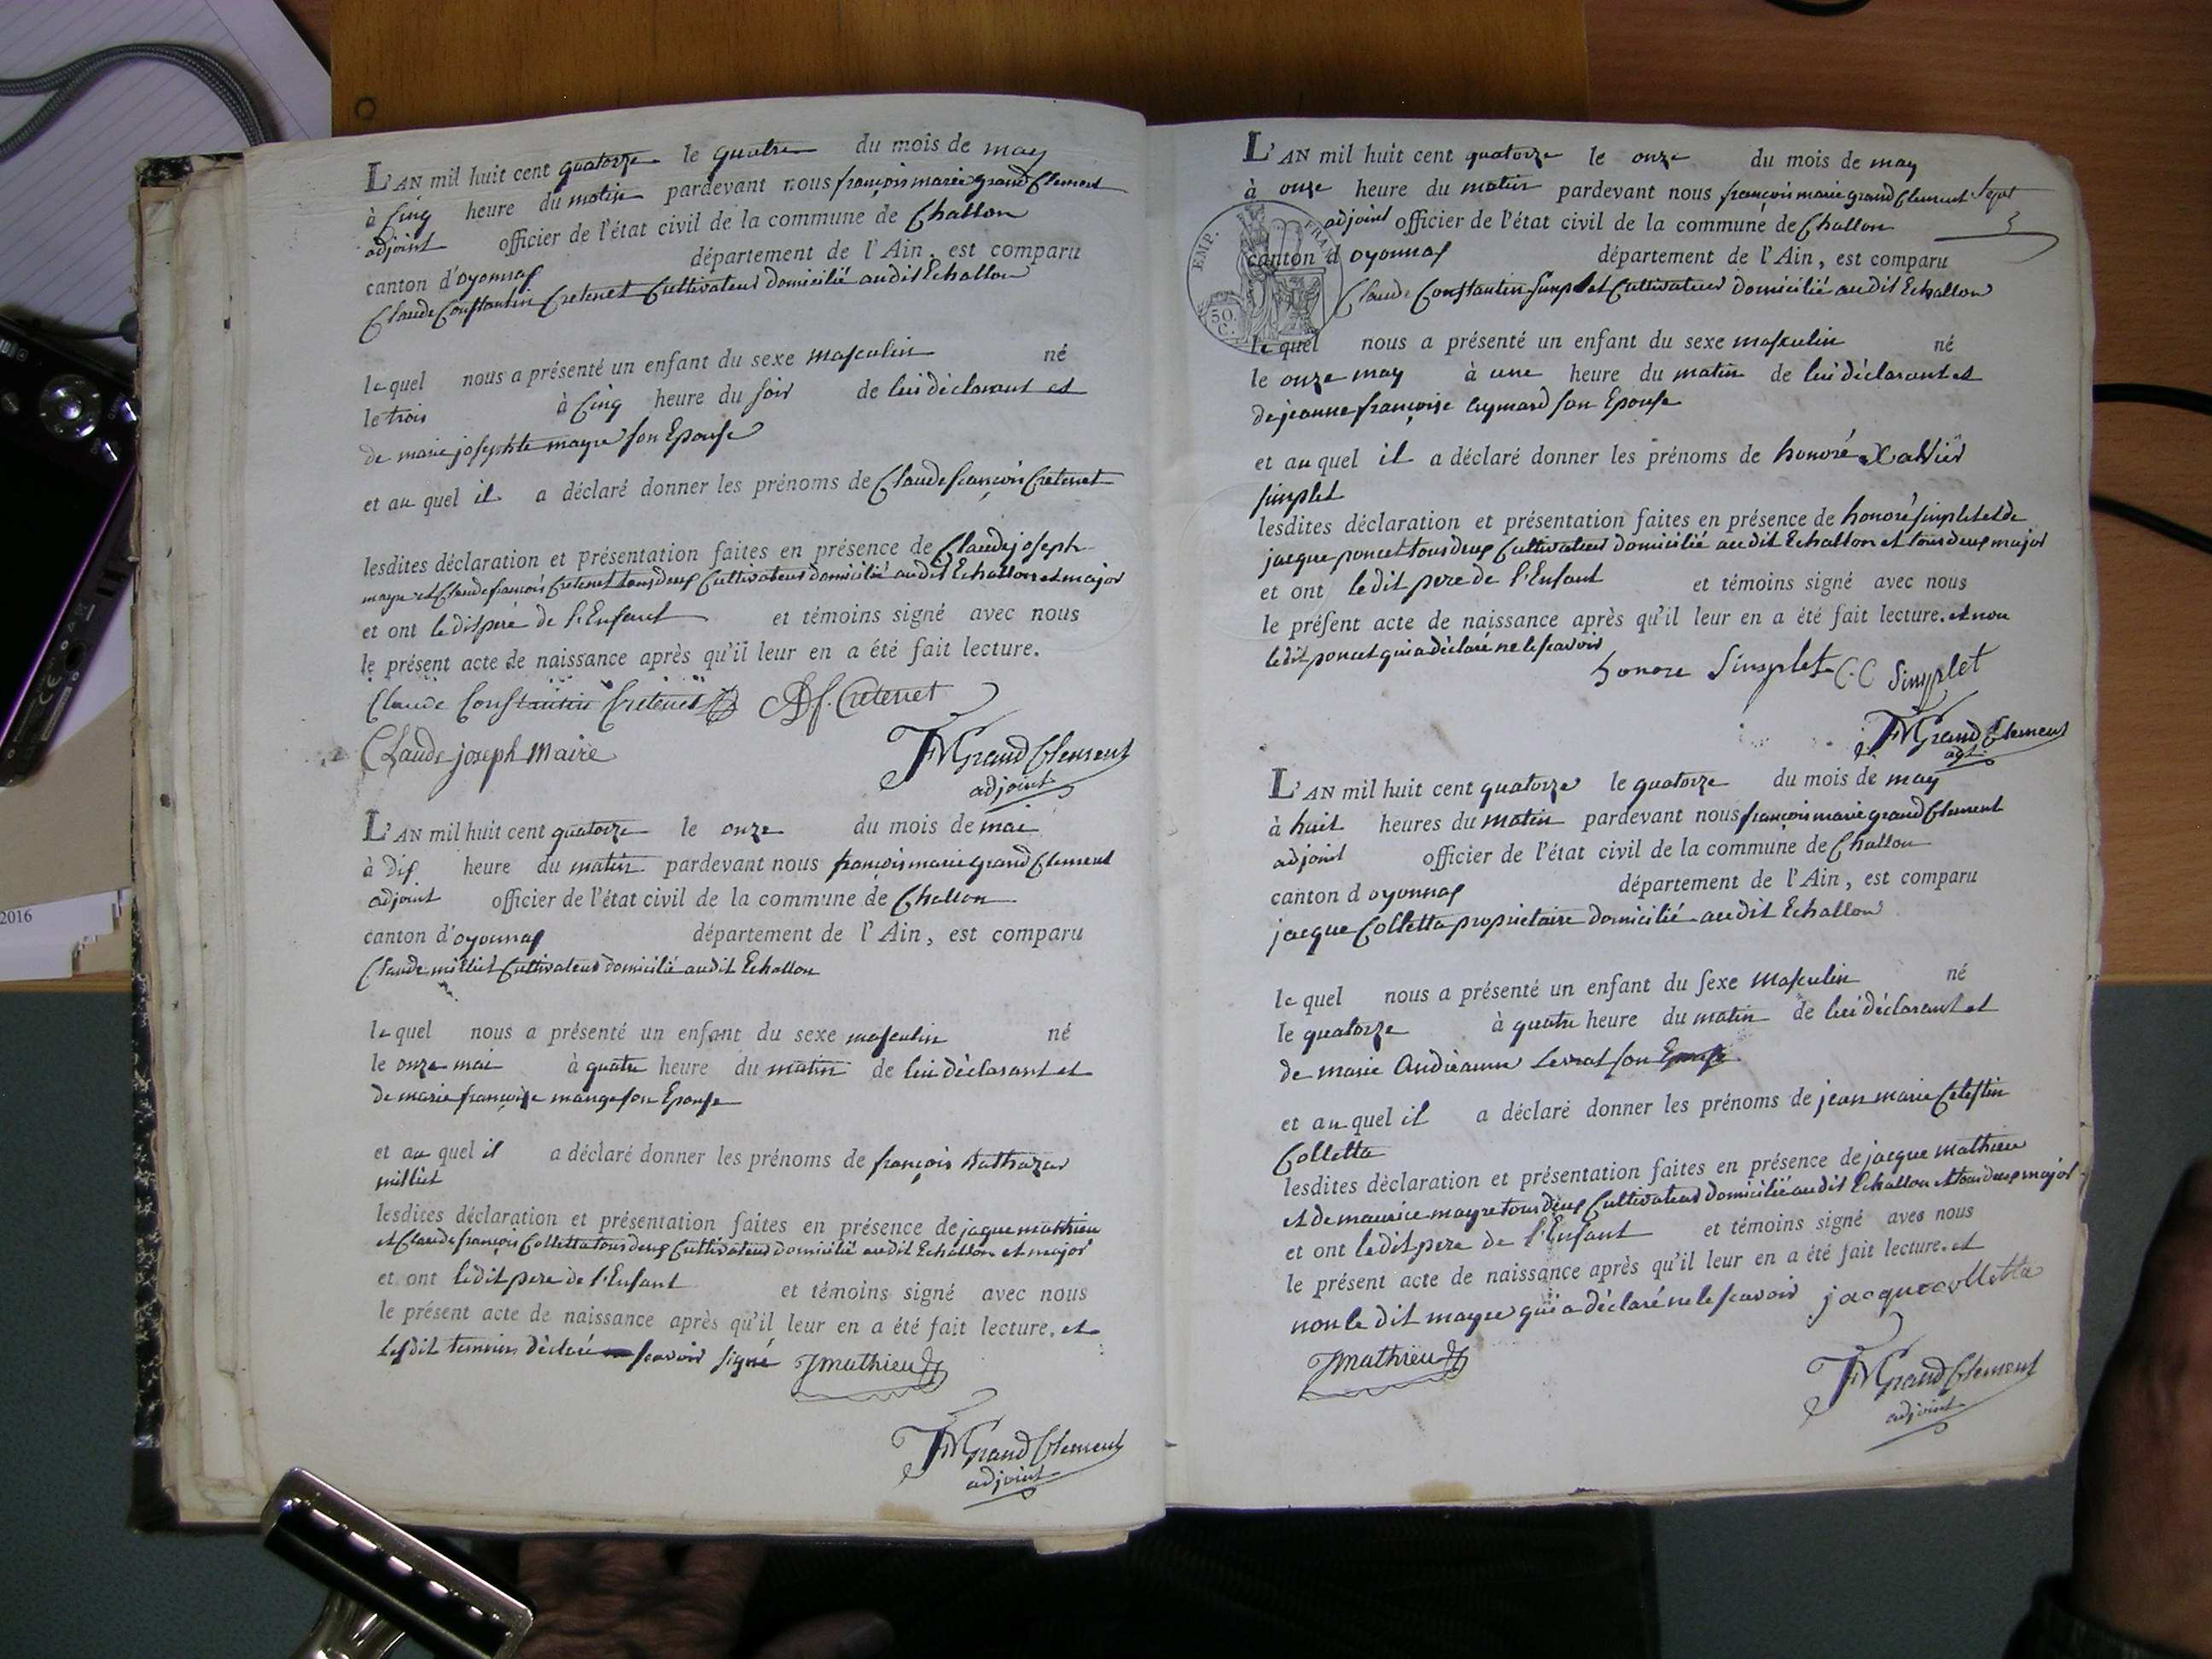 L'AN mil huit cent quatorze le quatre du mois de may
à Cinq heure du matin pardevant nous françois marie grand Clement
adjoint officier de l'état civil de la commune de Challon
canton d'oyonnax département de l'Ain, est comparu
Claude Constantin Cretenet Cultivateur domicilié audit Echallon
le quel nous a présenté un enfant du sexe masculin né
le trois à Cinq heure du soir de lui déclarant et
de marie josephte mayre son Epouse
et au quel il a déclaré donner les prénoms de Claude françois Cretenet
lesdites déclaration et présentation faites en présence de Claude joseph
mayre et Claude françois Cretenet tous deux Cultivateurs domicilié audit Echallon et major
et ont le dit pere de l'Enfant et témoins signé avec nous
le présent acte de naissance après qu'il leur en a été fait lecture.
Claude Constantin Cretenet Cretenet
Claude joseph Maire FM Grand Clement
adjoint
L'AN mil huit cent quatorze le onze du mois de mai
à dix heure du matin pardevant nous françois marie grand Clement
adjoint officier de l'état civil de la commune de Challon
canton d'oyonnax département de l'Ain, est comparu
Claude milliet Cultivateur domicilié audit Echallon
le quel nous a présenté un enfant du sexe masculin né
le onze mai à quatre heure du matin de lui déclarant et
de marie françoise mange son Epouse
et au quel il a déclaré donner les prénoms de françois Balthazar
milliet
lesdites déclaration et présentation faites en présence de jaque mathieu
et Claude françois Colletta tous deux Cultivateurs domicilié audit Echallon et major
et ont le dit pere de l'Enfant et témoins signé avec nous
le présent acte de naissance après qu'il leur en a été fait lecture. et
déclaré scavoir signé J mathieu
FM Grand Clement
adjoint
L'AN mil huit cent quatorze le onze du mois de may
à onze heure du matin pardevant nous françois marie grand Clement Sept
adjoint officier de l'état civil de la commune de Challon
canton d oyonnax département de l'Ain, est comparu
Claude Constantin Simplet Cultivateur domicilié audit Echallon
EMP. FRAN
50. C.
le quel nous a présenté un enfant du sexe masculin né
le onze may à une heure du matin de lui déclarant et
de jeanne françoise Aymard son Epouse
et au quel il a déclaré donner les prénoms de honoré Xavier
simplet
lesdites déclaration et présentation faites en présence de honoré simplet et de
jacque poncet tous deux Cultivateur domicilié audit Echallon et tous deux major
et ont le dit pere de l'Enfant et témoins signé avec nous
le présent acte de naissance après qu'il leur en a été fait lecture. et non
ledit poncet qui a déclaré ne le scavoir
honore Simplet C.C Simplet
FM Grand Clement
adjt
L'AN mil huit cent quatorze le quatorze du mois de may
à huit heures du matin pardevant nous françois marie grand Clement
adjoint officier de l'état civil de la commune de Challon
canton d oyonnax département de l'Ain, est comparu
jacque Colletta propriétaire domicilié audit Echallon
le quel nous a présenté un enfant du sexe masculin né
le quatorze à quatre heure du matin de lui déclarant et
de marie Andréanne Levrat son Epouse
et au quel il a déclaré donner les prénoms de jean marie Celestin
Colletta
lesdites déclaration et présentation faites en présence de jacque mathieu
et de maurice mayre tous deux Cultivateurs domicilié audit Echallon et tous deux major
et ont le dit pere de l'Enfant et témoins signé avec nous
le présent acte de naissance après qu'il leur en a été fait lecture. et
non le dit mayre qui a déclaré ne le scavoir jacque colletta
J mathieu
FM Grand Clement
adjoint
2016